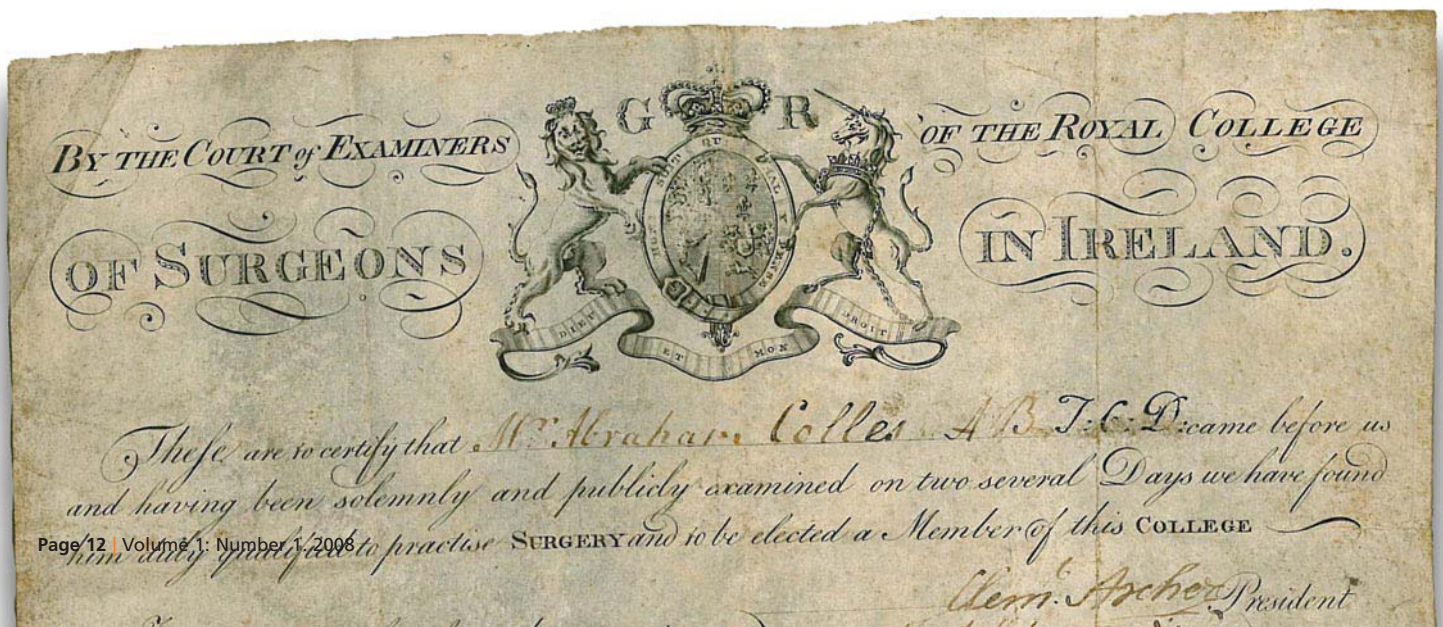 G R
BY THE COURT of EXAMINERS OF THE ROYAL COLLEGE
OF SURGEONS IN IRELAND.
DIEU ET MON DROIT
Theſe are to certify that Mr Abraham Colles A B T:C:D: came before us
and having been solemnly and publicly examined on two several Days we have found
him duly qualified to practise SURGERY and to be elected a Member of this COLLEGE
Page 12 | Volume 1: Number 1. 2008
Clemt. Archer President